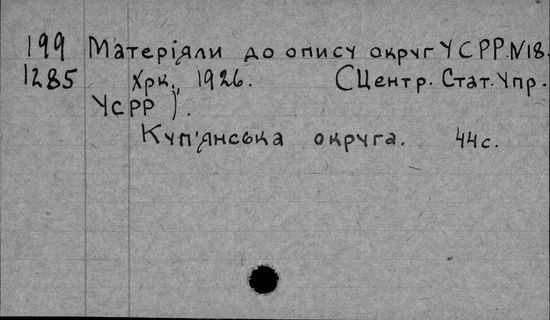 199 Матеріяли до опису округ УСРР. N18.
1285 Хрк., 1926. (Центр. Стат. Упр.
УСРР).
Куп'янська округа. 44 с.